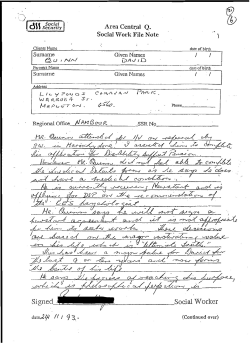 DSS Social Security
Area Central Q.
Social Work File Note
Clients Name
date of birth
Surname
Given Names
/ /
QUINN
DAVID
date of birth
Surname
Given Names
/ /
Address
LILYPONDS CARAVAN PARK.
WARRUGA ST.
MAPLETON. 4560.
Phone
Regional Office NAMBOUR
SSR No.
Mr Quinn attended for I/V on referral by
RM in Maroochydore. I wanted him to complete
his application for Disability Support Pension
However Mr Quinn did not feel able to complete
the Medical Details form as he says he does
not have a medical condition.
He is currently receiving Newstart and is
for DSP on the recommendation of
the CES
Mr Quinn says he will not sign a
Newstart agreement and it is not appropriate
for him to seek work. These decisions
are based on the major motivating value
in his life which is "Ultimate Truth".
This has been a major value for David for
the last 9 or ten years and now forms
the basis of his life.
He says the process of reaching this purpose,
which is philosophical perfection, is
Signed
Social Worker
date 24/11/93.
(Continued over)